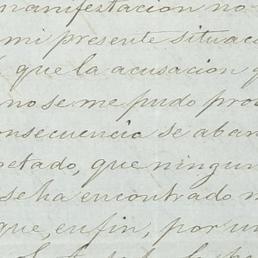 manifestacion no
mi presente situac
que la acusacion
no se me pudo pro
onsecuencia se aban
petado, que ningun
se ha encontrado
que, en fin, por un